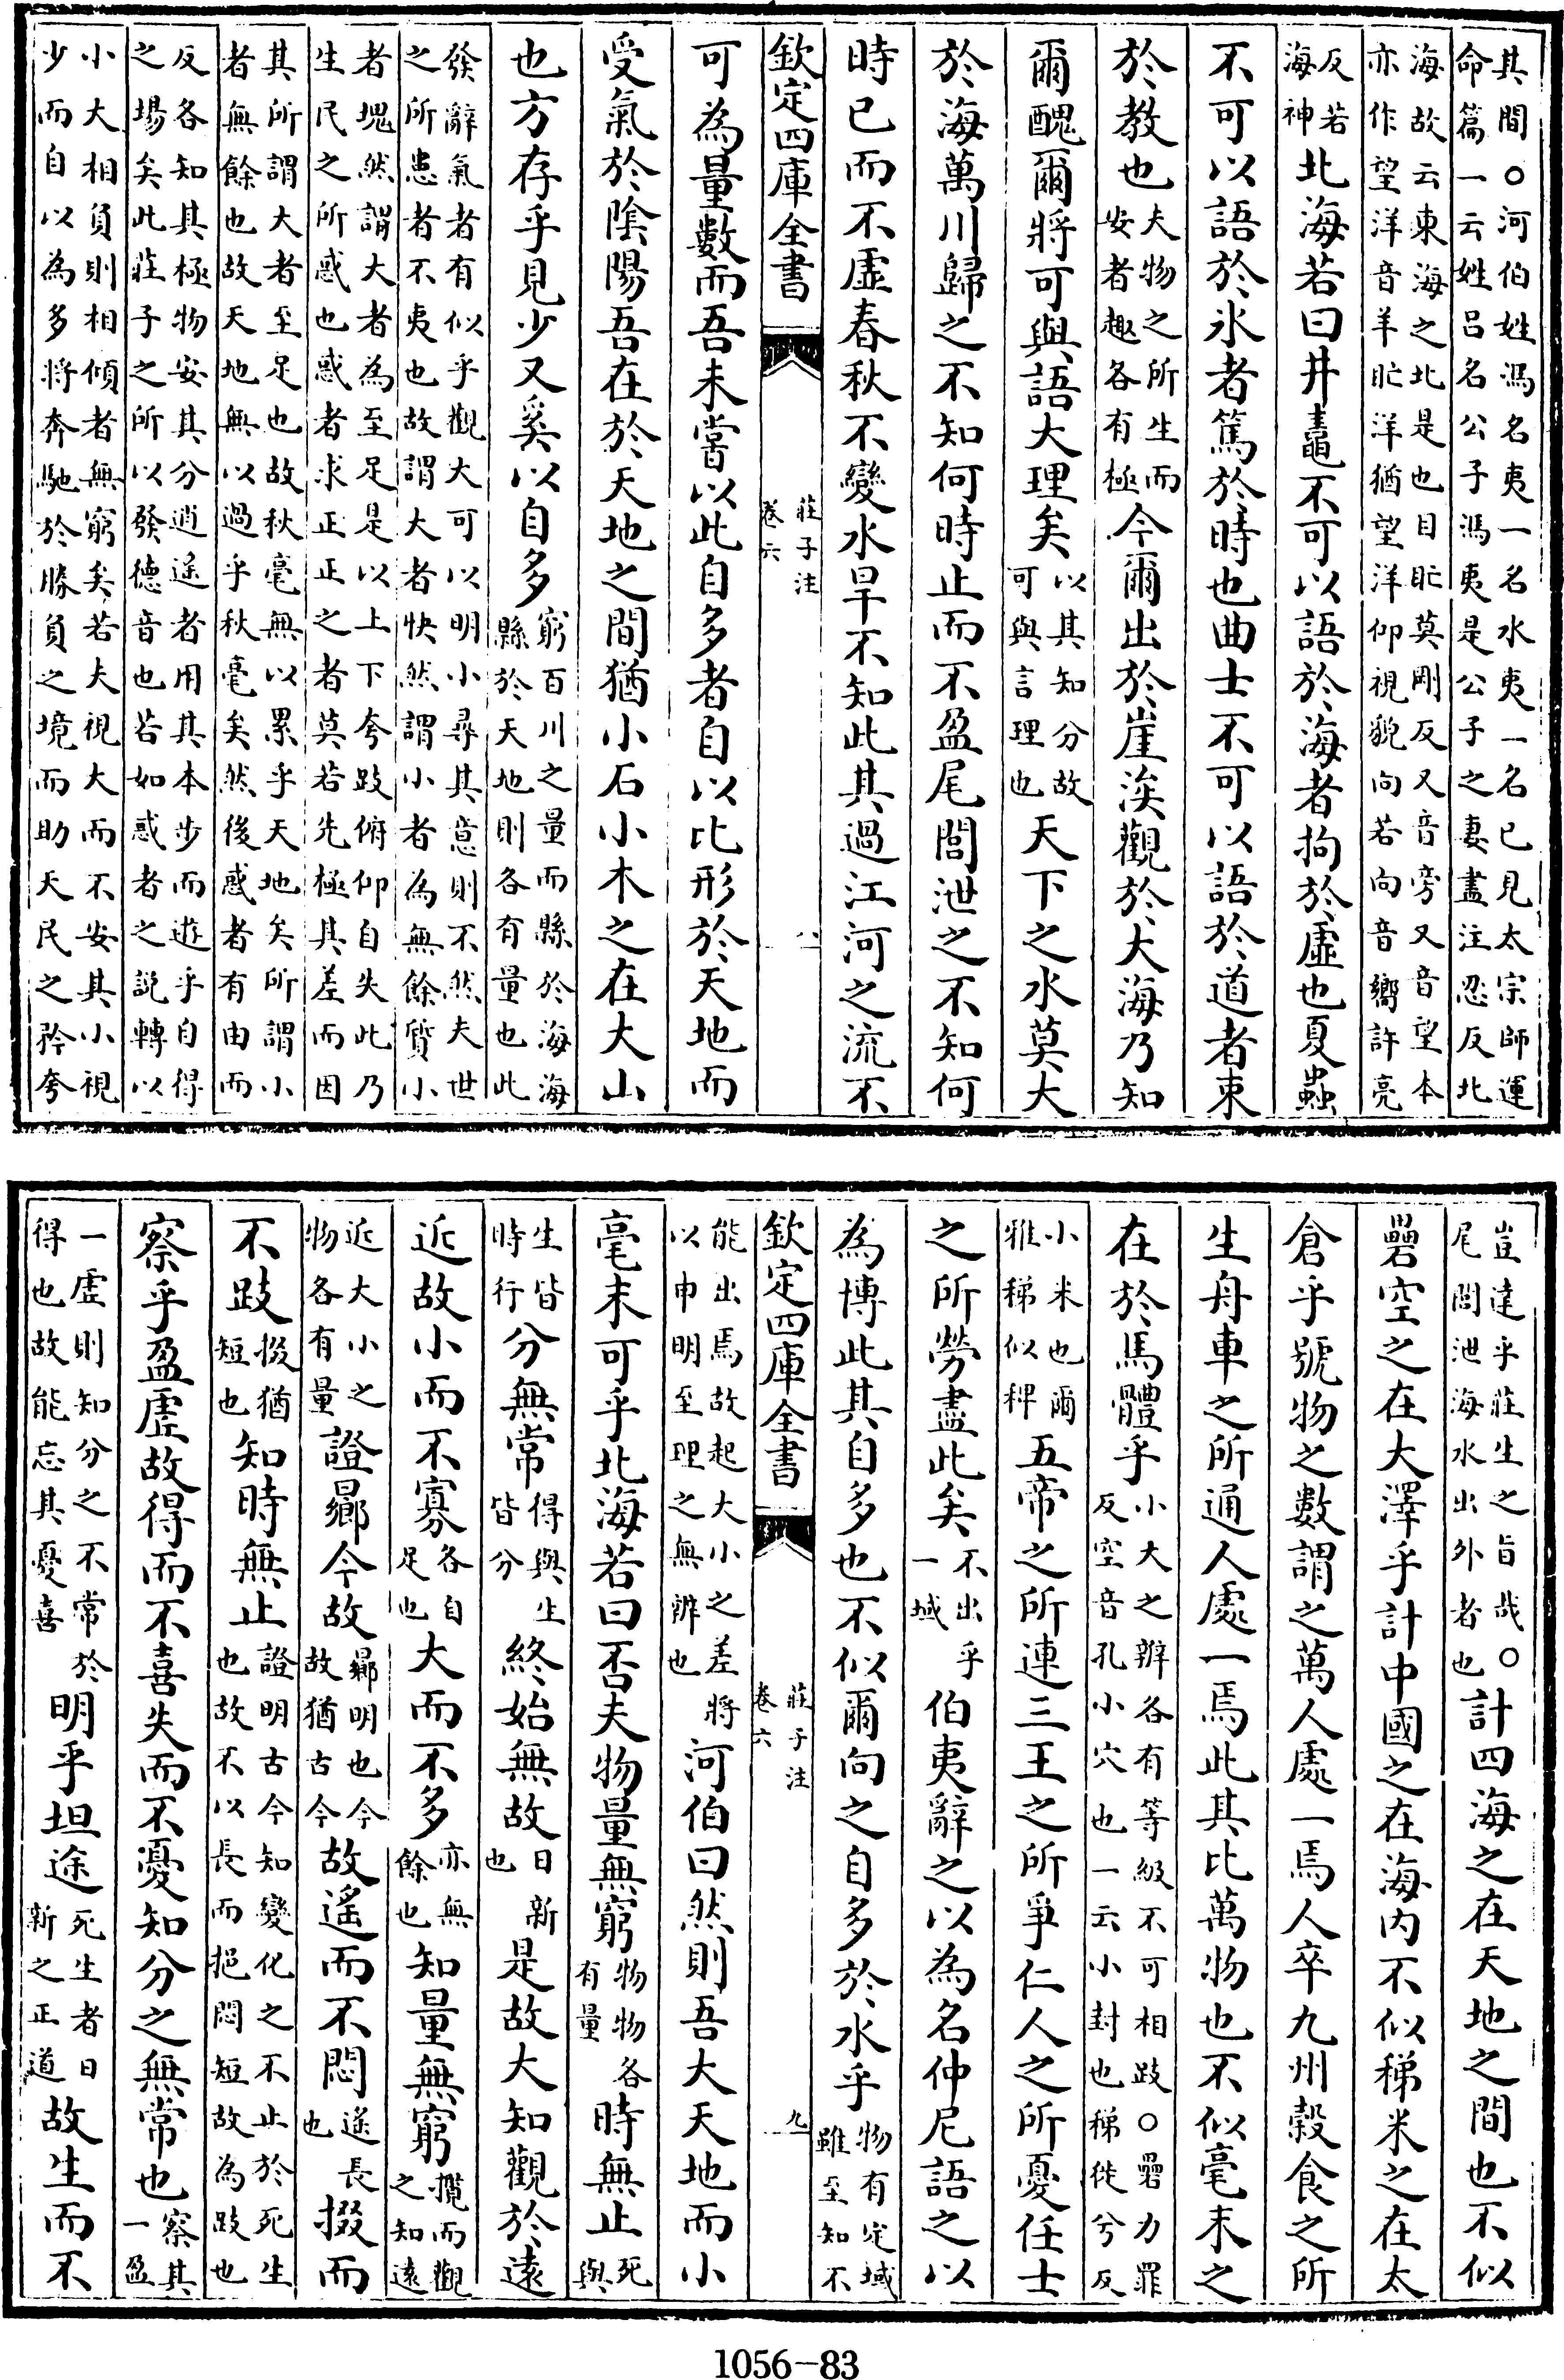 其間○河伯姓馮名夷一名水夷一名已見太宗師運
命篇一云姓呂名公子馮夷是公子之妻盡注忍反北
海故云東海之北是也目盳莫剛反又音旁又音望本
亦作望洋音羊盳洋猶望洋仰視貌向若向音嚮許亮
反若
海神
北海若曰井鼃不可以語於海者拘於虛也夏蟲
不可以語於冰者篤於時也曲士不可以語於道者束
於教也
夫物之所生而
安者趣各有極
今爾出於崖涘觀於大海乃知
爾醜爾將可與語大理矣
以其知分故
可與言理也
天下之水莫大
於海萬川歸之不知何時止而不盈尾閭泄之不知何
時已而不虛春秋不變水旱不知此其過江河之流不
欽定四庫全書
莊子注
卷六
八
可為量數而吾未嘗以此自多者自以比形於天地而
受氣於陰陽吾在於天地之間猶小石小木之在大山
也方存乎見少又奚以自多
窮百川之量而縣於海海
縣於天地則各有量也此
發辭氣者有似乎觀大可以明小尋其意則不然夫世
之所患者不夷也故謂大者快然謂小者為無餘質小
者塊然謂大者為至足是以上下夸跂俯仰自失此乃
生民之所惑也惑者求正正之者莫若先極其差而因
其所謂大者至足也故秋毫無以累乎天地矣所謂小
者無餘也故天地無以過乎秋毫矣然後惑者有由而
反各知其極物安其分逍遙者用其本步而遊乎自得
之場矣此莊子之所以發德音也若如惑者之說轉以
小大相負則相傾者無窮矣若夫視大而不安其小視
少而自以為多將奔馳於勝負之境而助天民之矜夸
豈達乎莊生之旨哉○
尾閭泄海水出外者也
計四海之在天地之間也不似
礨空之在大澤乎計中國之在海內不似稊米之在太
倉乎號物之數謂之萬人處一焉人卒九州穀食之所
生舟車之所通人處一焉此其比萬物也不似毫末之
在於馬體乎
小大之辨各有等級不可相跂○礨力罪
反空音孔小穴也一云小封也稊徙兮反
小米也爾
雅稊似稗
五帝之所連三王之所爭仁人之所憂任士
之所勞盡此矣
不出乎
一域
伯夷辭之以為名仲尼語之以
為博此其自多也不似爾向之自多於水乎
物有定域
雖至知不
欽定四庫全書
莊子注
卷六
九
能出焉故起大小之差將
以申明至理之無辨也
河伯曰然則吾大天地而小
毫末可乎北海若曰否夫物量無窮
物物各
有量
時無止
死
與
生皆
時行
分無常
得與生
皆分
終始無故
日新
也
是故大知觀於遠
近故小而不寡
各自
足也
大而不多
亦無
餘也
知量無窮
攬而觀
之知遠
近大小之
物各有量
證曏今故
曏明也今
故猶古今
故遙而不悶
遙長
也
掇而
不跂
掇猶
短也
知時無止
證明古今知變化之不止於死生
也故不以長而挹悶短故為跂也
察乎盈虛故得而不喜失而不憂知分之無常也
察其
一盈
一虛則知分之不常於
得也故能忘其憂喜
明乎坦途
死生者日
新之正道
故生而不
1056-83